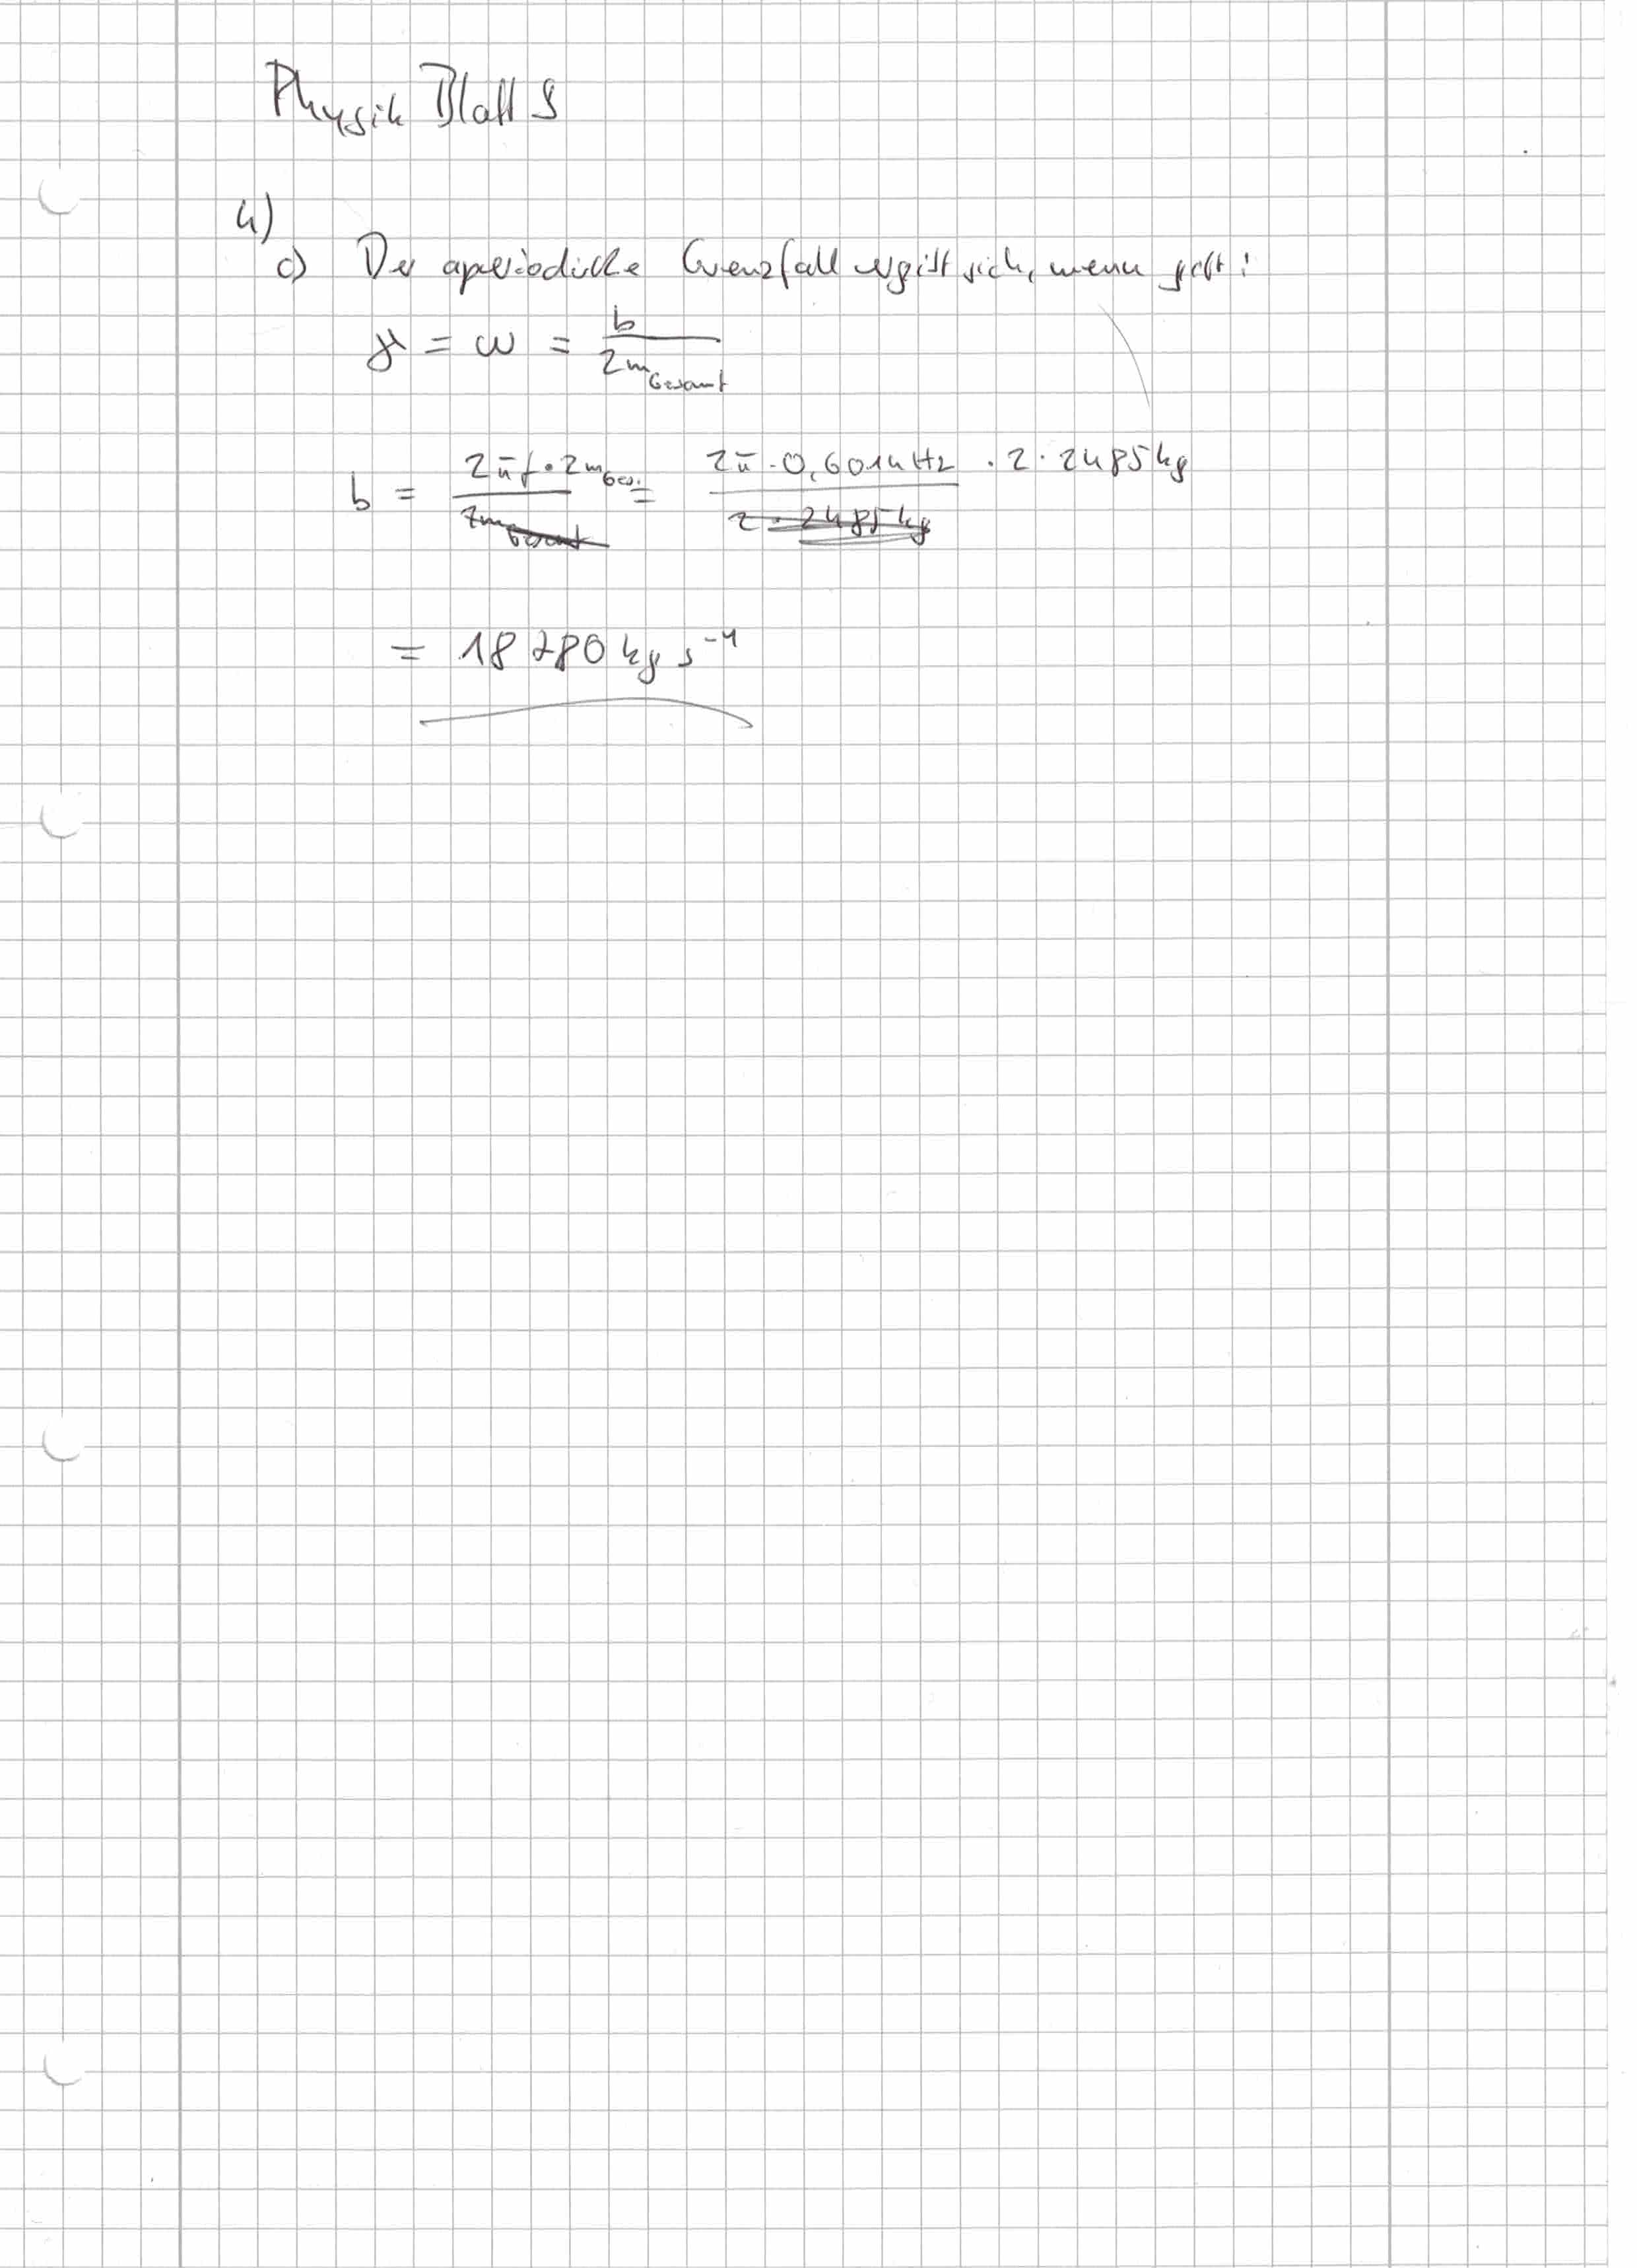 Physik Blatt 8
4)
c) Der aperiodische Grenzfall ergibt sich, wenn gilt:
γ = ω = b / 2m_Gesamt
b = 2πf · 2m_Ges. = 2π · 0,6014 Hz · 2 · 2485 kg
= 18 780 kg s⁻¹